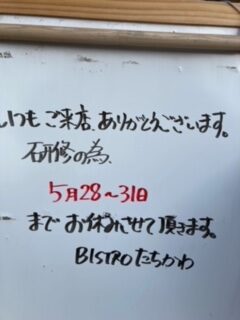 いつもご来店、ありがとうございます。
研修の為、
5月28〜31日
まで お休みさせて頂きます。
BISTROたちかわ